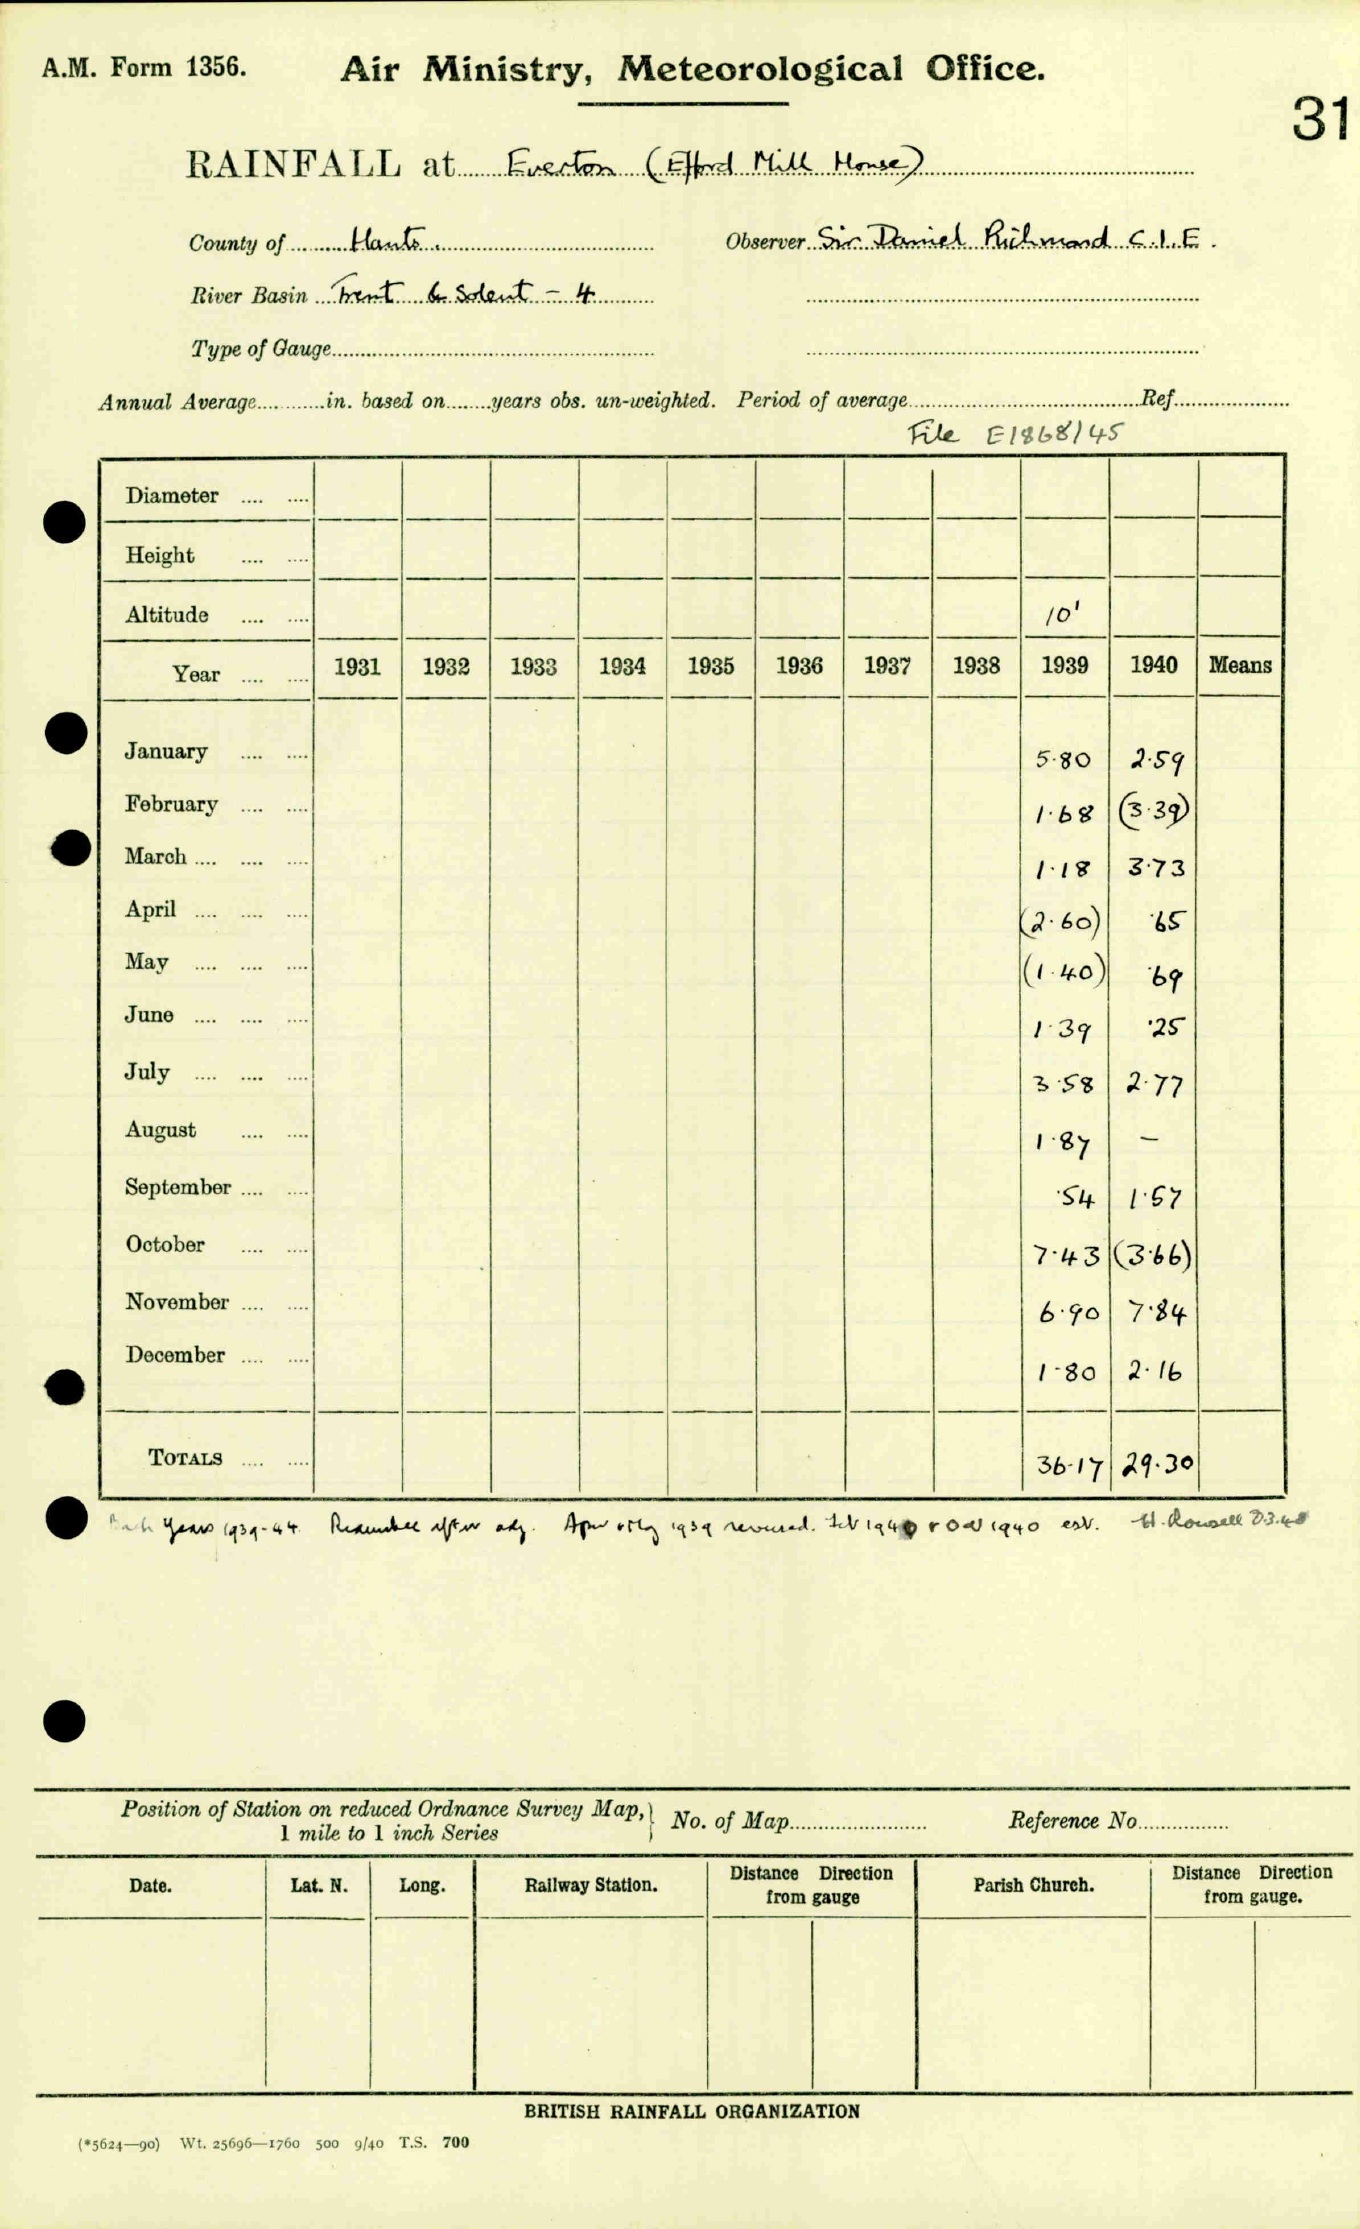 A.M. Form 1356.
Air Ministry, Meteorological Office.
31
RAINFALL at Everton (Efford Mill House)
County of Hants. Observer Sir Daniel Richmond C.I.E.
River Basin Frent to Solent - 4
Type of Gauge
Annual Average in. based on years obs. un-weighted. Period of average Ref
File E1868/45
Diameter
Height
Altitude 10'
Year 1931 1932 1933 1934 1935 1936 1937 1938 1939 1940 Means
January 5.80 2.59
February 1.68 (3.39)
March 1.18 3.73
April (2.60) .65
May (1.40) .69
June 1.39 .25
July 3.58 2.77
August 1.87 -
September .54 1.57
October 7.43 (3.66)
November 6.90 7.84
December 1.80 2.16
TOTALS 36.17 29.30
Years 1939-44 after adj. 1939 reversed. Feb 1940 + Oct 1940 est. H. Rowsell
Position of Station on reduced Ordnance Survey Map, } No. of Map Reference No
1 mile to 1 inch Series
Date. Lat. N. Long. Railway Station. Distance Direction from gauge Parish Church. Distance Direction from gauge.
BRITISH RAINFALL ORGANIZATION
(*5624—90) Wt. 25696—1760 500 9/40 T.S. 700